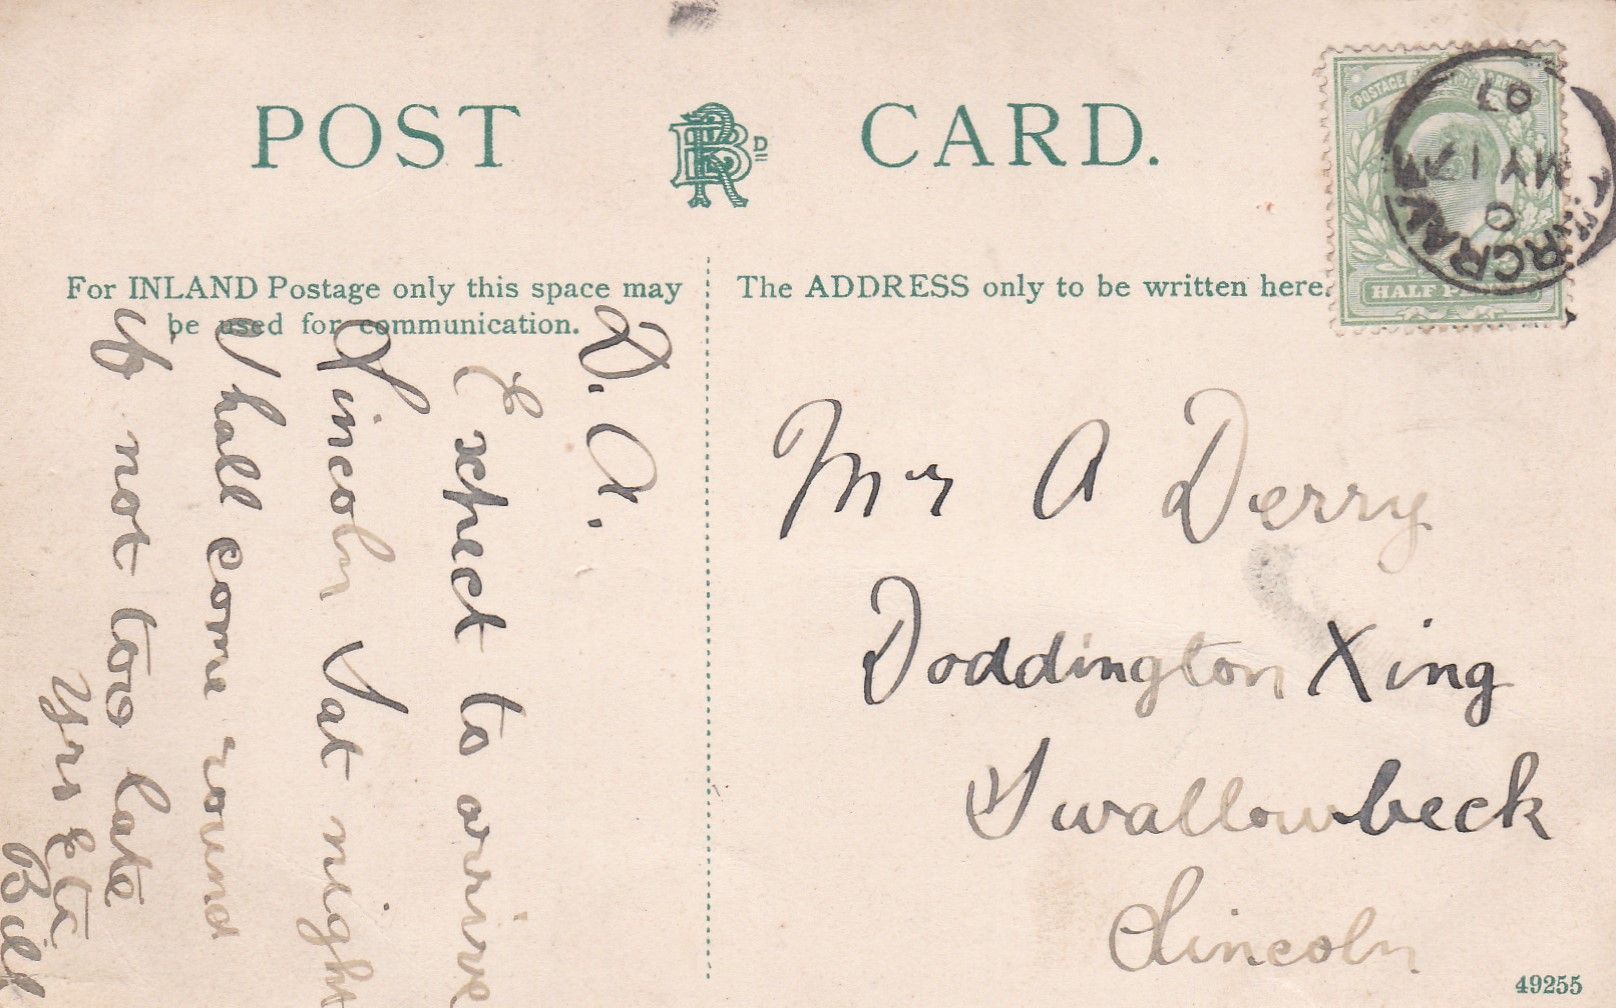 POST CARD.
For INLAND Postage only this space may
be used for communication.
The ADDRESS only to be written here.
POSTAGE
HALF
MY 17
07
D. A.
Expect to arrive
Lincoln Sat night
Shall come round
if not too late
Yrs &tc
Bill
Mr A Derry
Doddington Xing
Swallowbeck
Lincoln
49255